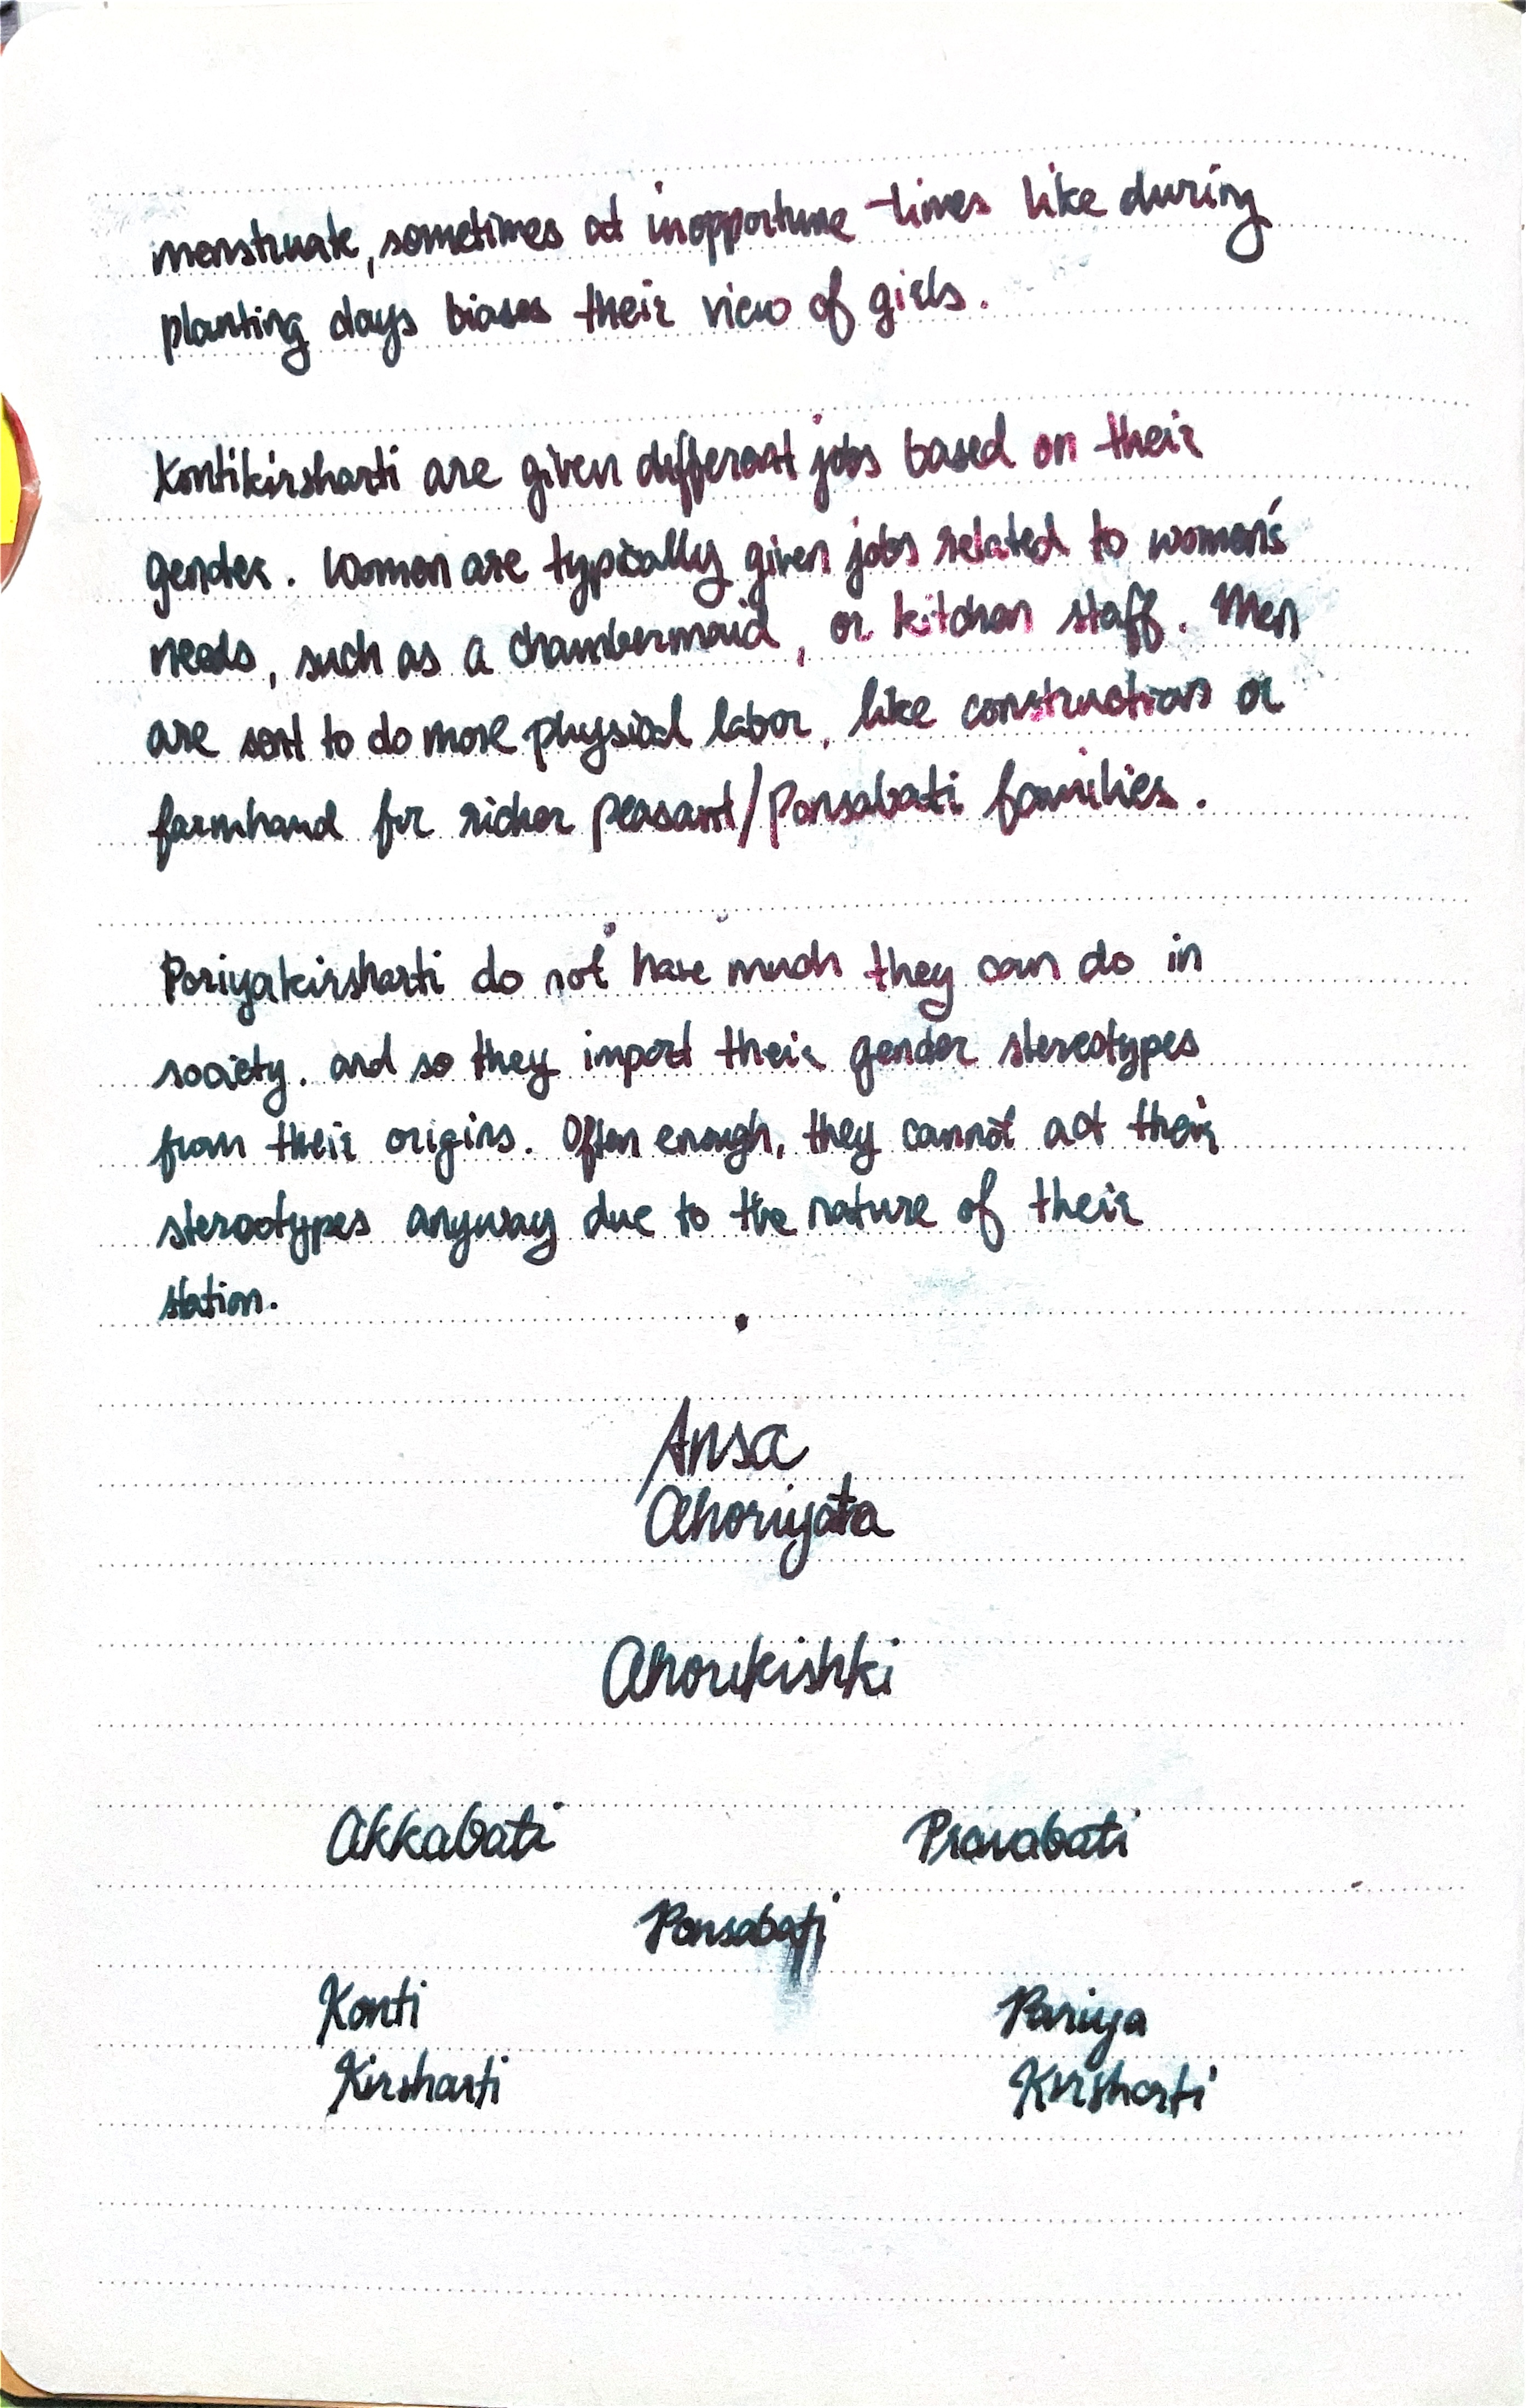 menstruate, sometimes at inopportune times like during
planting days biases their view of girls.
Kontikirsharti are given different jobs based on their
gender. Women are typically given jobs related to women's
needs, such as a chambermaid, or kitchen staff. Men
are sent to do more physical labor, like construction or
farmhand for richer peasant/Ponsabati families.
Pariyakirsharti do not have much they can do in
society. and so they import their gender stereotypes
from their origins. Often enough, they cannot act their
stereotypes anyway due to the nature of their
station.
Ansa
Ahoriyata
Ahorikishki
Akkabati Pravabati
Ponsabati
Konti Pariya
Kirsharti Kirsharti